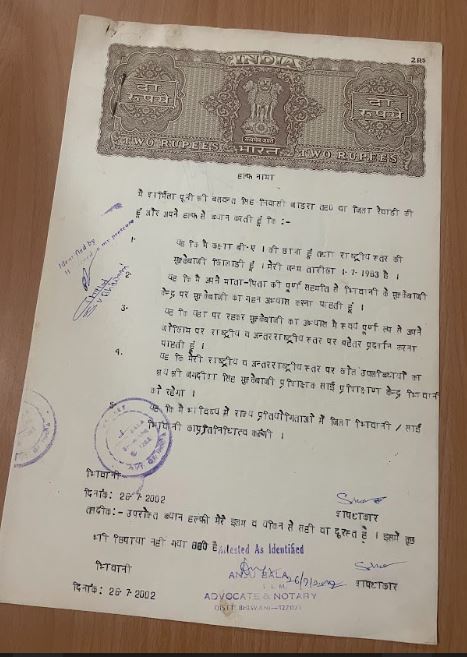 2 RS
INDIA
दो रुपये
दो रुपये
TWO RUPEES भारत TWO RUPEES
हल्फ नामा
मैं शर्मिला पुत्री श्री बलवन्त सिंह निवासी तह0 वा जिला रेवाडी की
हूं और अपने हल्फ से ब्यान करती हूं कि :-
Identified by
1. यह कि मैं कक्षा बी-ए । की छात्रा हूं तथा राष्ट्रीय स्तर की
मुक्केबाजी खिलाडी हूं । मेरी जन्म तारीख 1-7-1983 है ।
2. यह कि मैं अपने माता-पिता की पूर्ण सहमति से भिवानी के मुक्केबाजी
केन्द्र पर मुक्केबाजी का गहन अभ्यास करना चाहती हूं ।
3. यह कि यहां पर रहकर मुक्केबाजी का अभ्यास मैं स्वयं पूर्ण रूप से अपने
पर राष्ट्रीय व अन्तरराष्ट्रीय स्तर पर बेहतर प्रदर्शन करना
चाहती हूं ।
4. यह कि मेरी राष्ट्रीय व अन्तरराष्ट्रीय स्तर पर उपलब्धियों का
श्रेय श्री जगदीश सिंह मुक्केबाजी प्रशिक्षक साई प्रशिक्षण केन्द्र भिवानी
को रहेगा ।
यह कि मैं भविष्य में राज्य प्रतियोगिताओं में जिला भिवानी / साई
भिवानी का प्रतिनिधित्व करूंगी ।
भिवानी
दिनांक: 26-7-2002
शपथकार
तसदीक:- उपरोक्त ब्यान हल्फी मेरे इलम व यकीन से सही वा दुरुस्त है । इसमें कुछ
भी छिपाया नहीं गया है
Attested As Identified
भिवानी
ANJU BALA
26/7/2002
शपथकार
LL.M.
दिनांक: 26-7-2002
ADVOCATE & NOTARY
DISTT. BHIWANI-127021